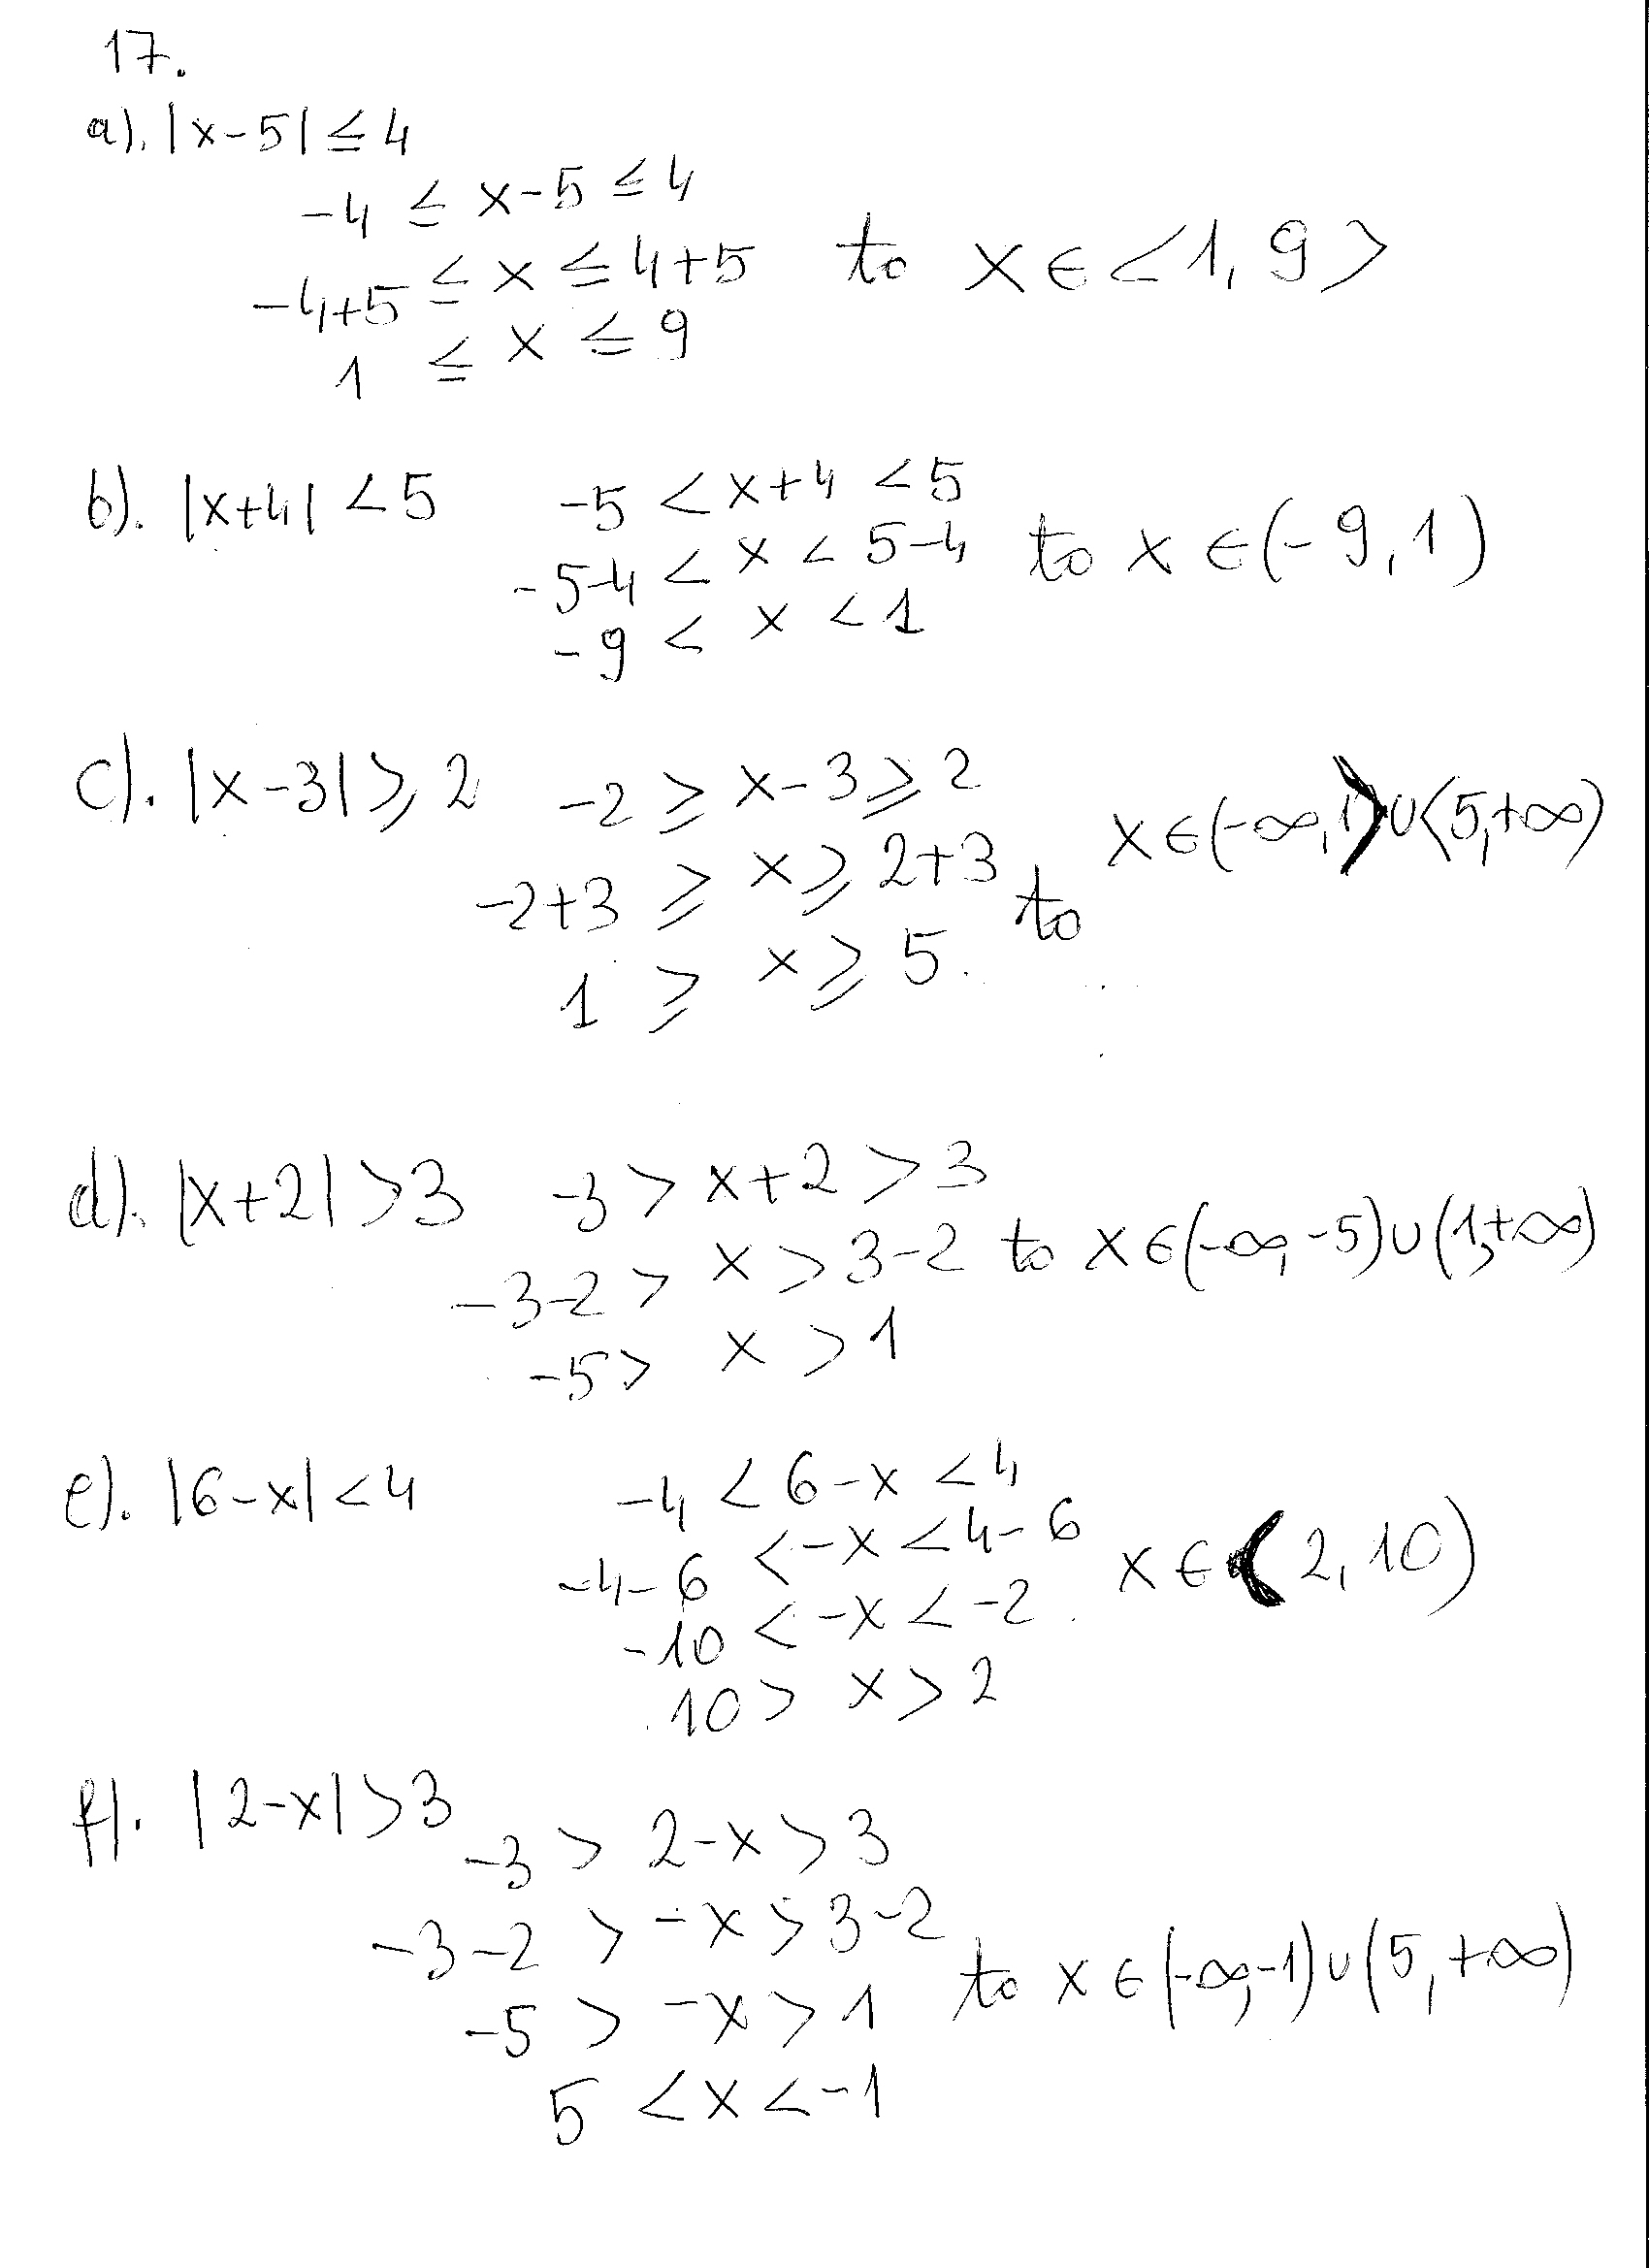 17.
a). |x-5| ≤ 4
-4 ≤ x-5 ≤ 4
-4+5 ≤ x ≤ 4+5 to x ∈ <1, 9>
1 ≤ x ≤ 9
b). |x+4| < 5 -5 < x+4 < 5
-5-4 < x < 5-4 to x ∈ (-9, 1)
-9 < x < 1
c). |x-3| ⩾ 2 -2 ≥ x-3 ⩾ 2
-2+3 ⩾ x ⩾ 2+3 to x ∈ (-∞, 1> ∪ <5, +∞)
1 ⩾ x ⩾ 5.
d). |x+2| > 3 -3 > x+2 > 3
-3-2 > x > 3-2 to x ∈ (-∞, -5) ∪ (1, +∞)
-5 > x > 1
e). |6-x| < 4 -4 < 6-x < 4
-4-6 < -x < 4-6 x ∈ (2, 10)
-10 < -x < -2
10 > x > 2
f). |2-x| > 3
-3 > 2-x > 3
-3-2 > -x > 3-2
-5 > -x > 1 to x ∈ (-∞, -1) ∪ (5, +∞)
5 < x < -1